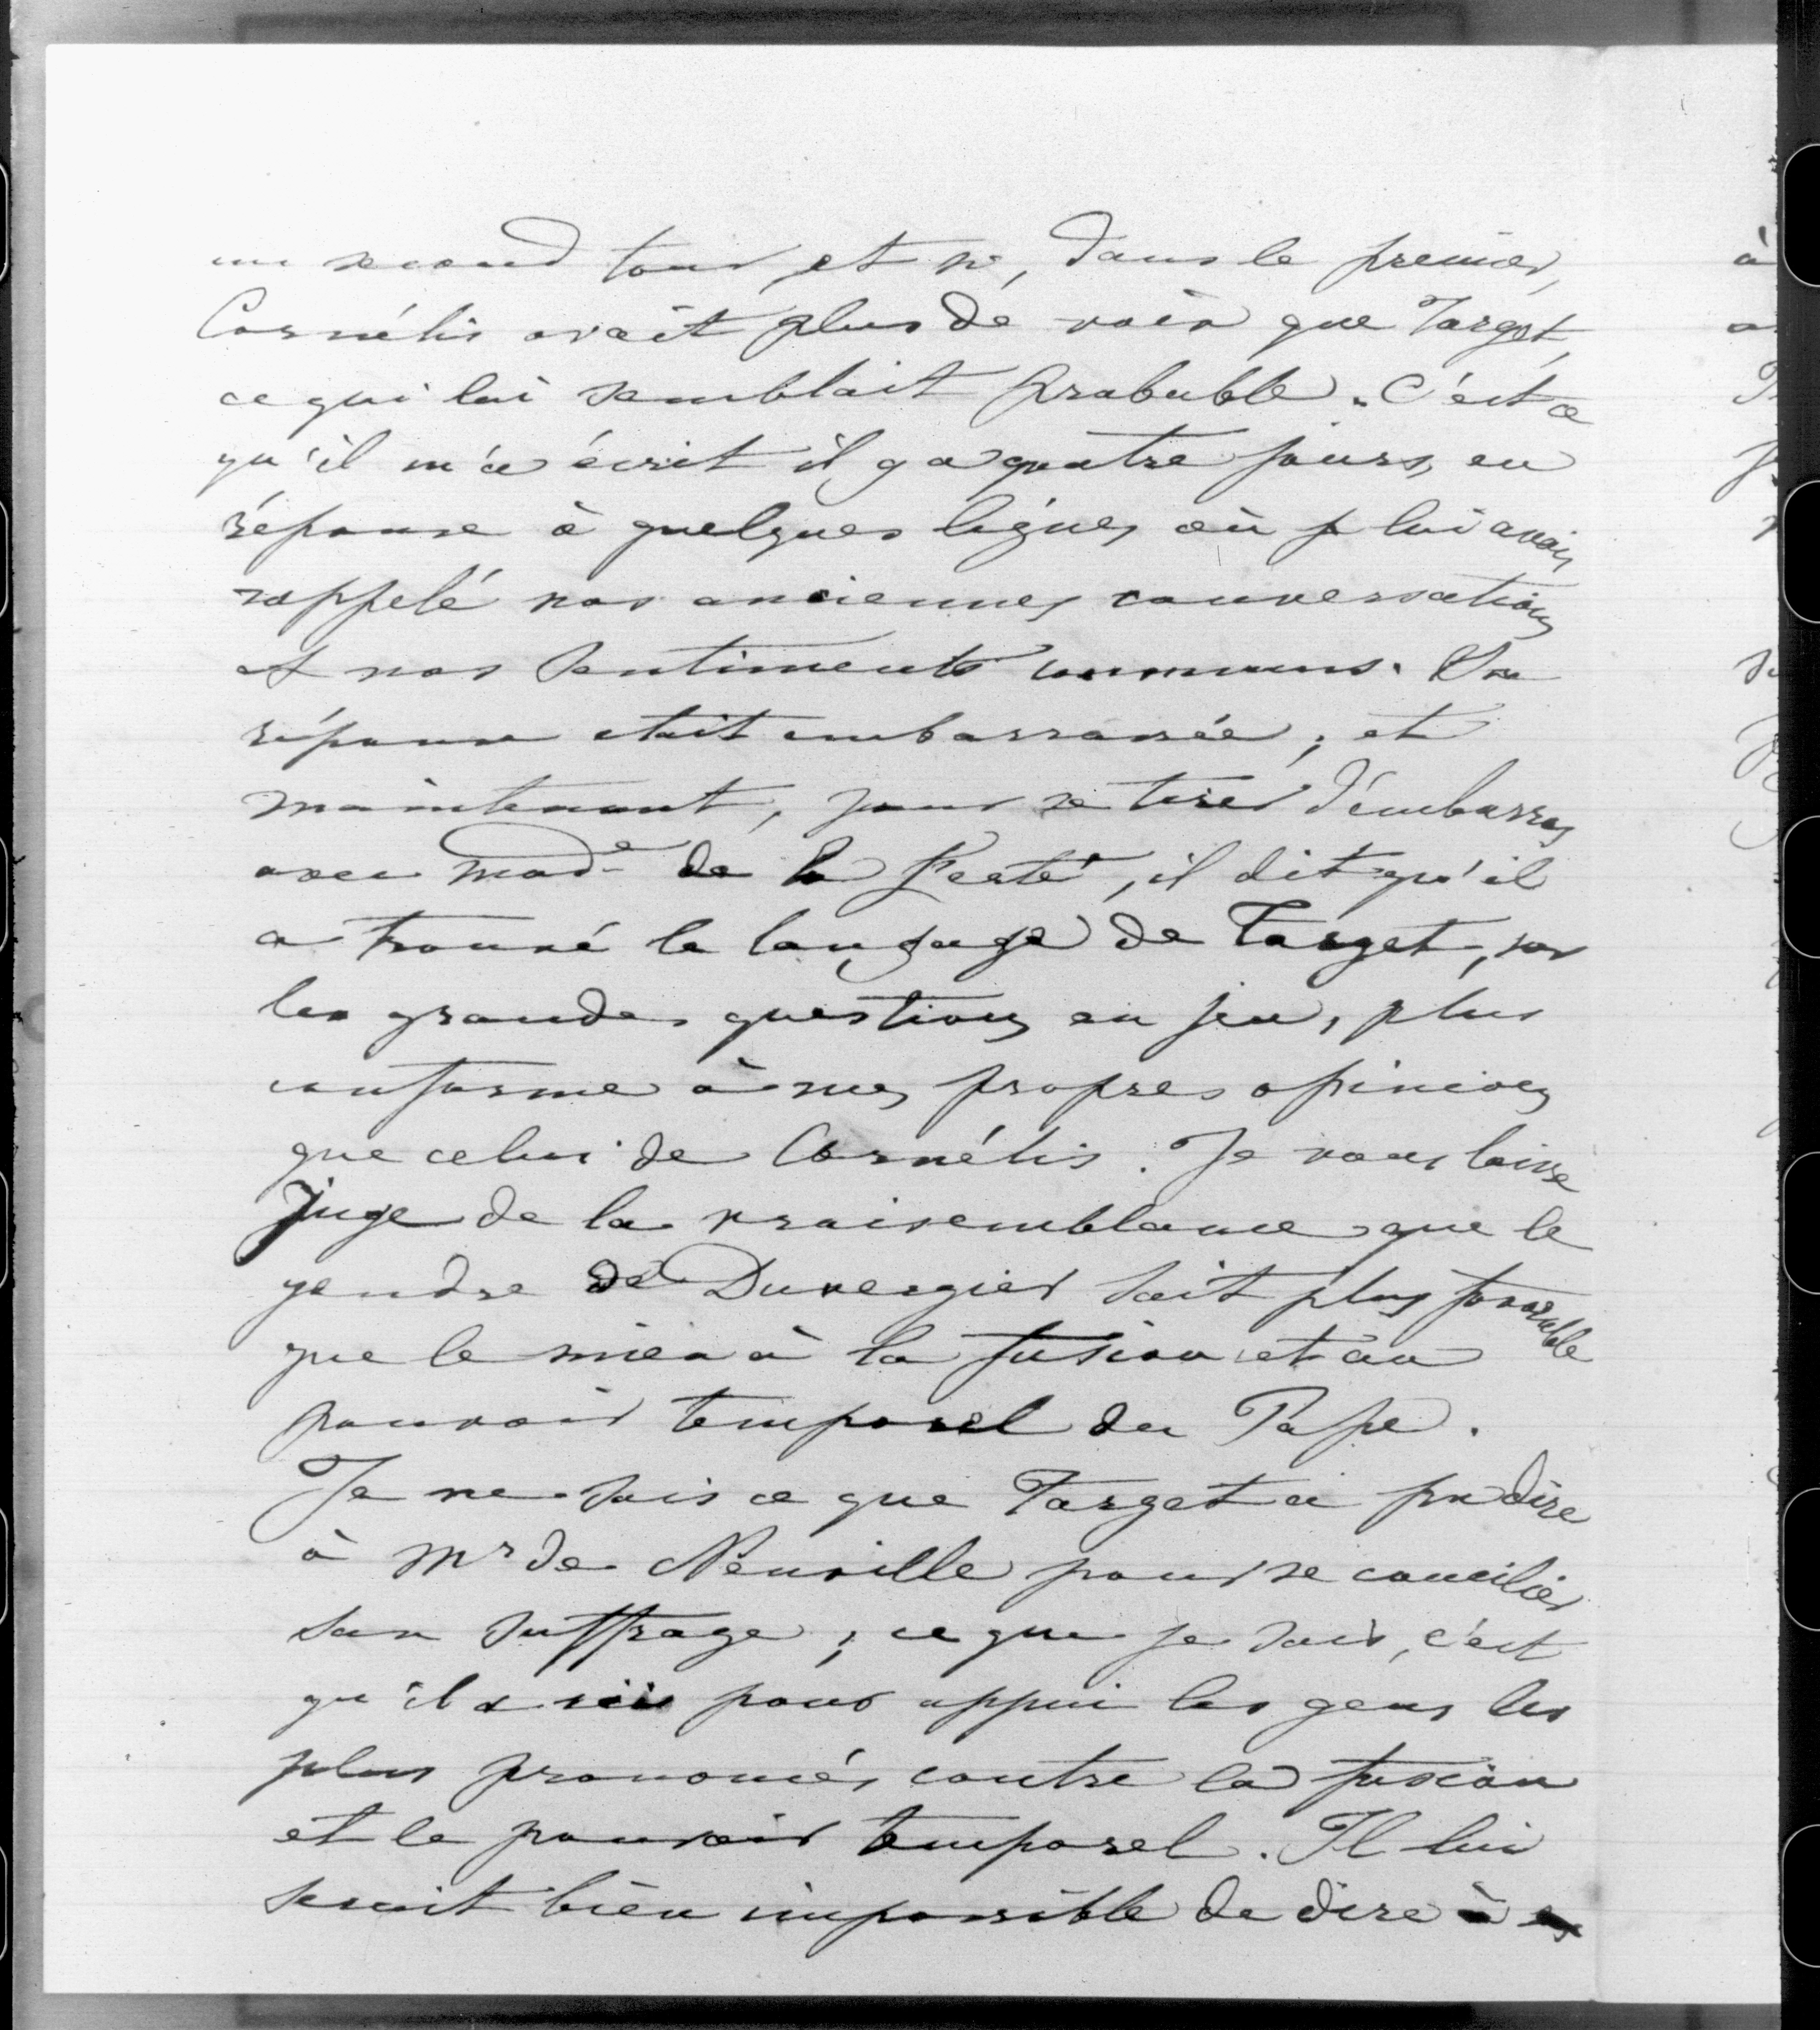 un second tour et si, dans le premier,
Cornélis avait plus de voix que Target,
ce qui lui semblait probable. C'est ce
qu'il m'a écrit il y a quatre jours, en
réponse à quelques lignes où je lui avais
rappelé nos anciennes conversations
et nos sentiments communs. Sa
réponse était embarrassée ; et
maintenant, pour se tirer d'embarras
avec Made de la Ferté, il dit qu'il
a trouvé le langage de Target, sur
les grandes questions en jeu, plus
conforme à mes propres opinions
que celui de Cornélis. Je vous laisse
juge de la vraisemblance que le
gendre de Duvergier soit plus favorable
que le mien à la fusion et au
pouvoir temporel du Pape.
Je ne sais ce que Target a pu dire
à Mr de Neuville pour se concilier
son suffrage ; ce que je sais, c'est
qu'il a pour appui les gens les
plus prononcés contre la fusion
et le pouvoir temporel. Il lui
serait bien impossible de dire à
à